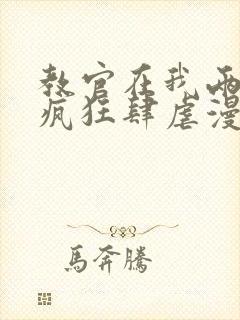 教官在我兩
瘋狂肆虐漫
馬奔騰